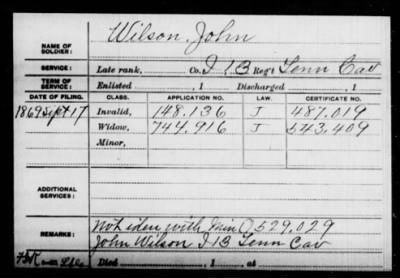 NAME OF SOLDIER: Wilson, John
SERVICE: Late rank, Co. I 13 Reg't Tenn Cav
TERM OF SERVICE: Enlisted , 1 Discharged , 1
DATE OF FILING. CLASS. APPLICATION NO. LAW. CERTIFICATE NO.
1869 Sept 17 Invalid, 148.136 J 487.019
Widow, 744,916 J 543.409
Minor,
ADDITIONAL SERVICES:
REMARKS: Not iden with Inv O 529.029
John Wilson I 13 Tenn Cav
Died , 1 , at